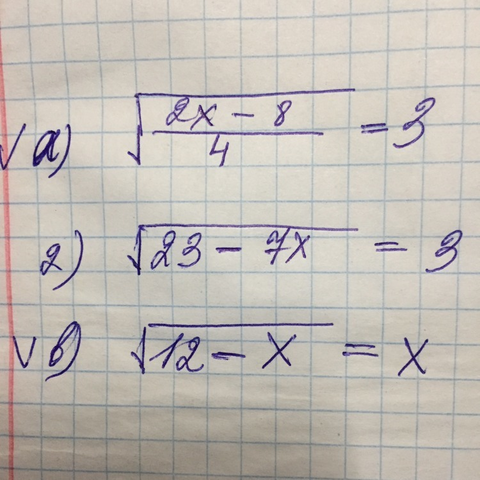 √ а) √((2x - 8)/4) = 3
2) √(23 - 7x) = 3
√ в) √(12 - x) = x